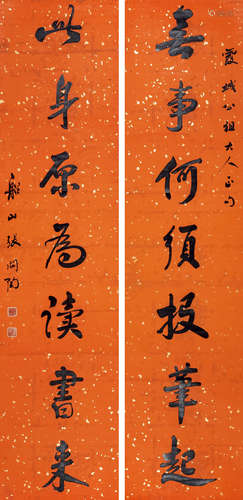 霞城公祖大人正句
喜事何須投筆起
此身原為讀書来
船山張問陶